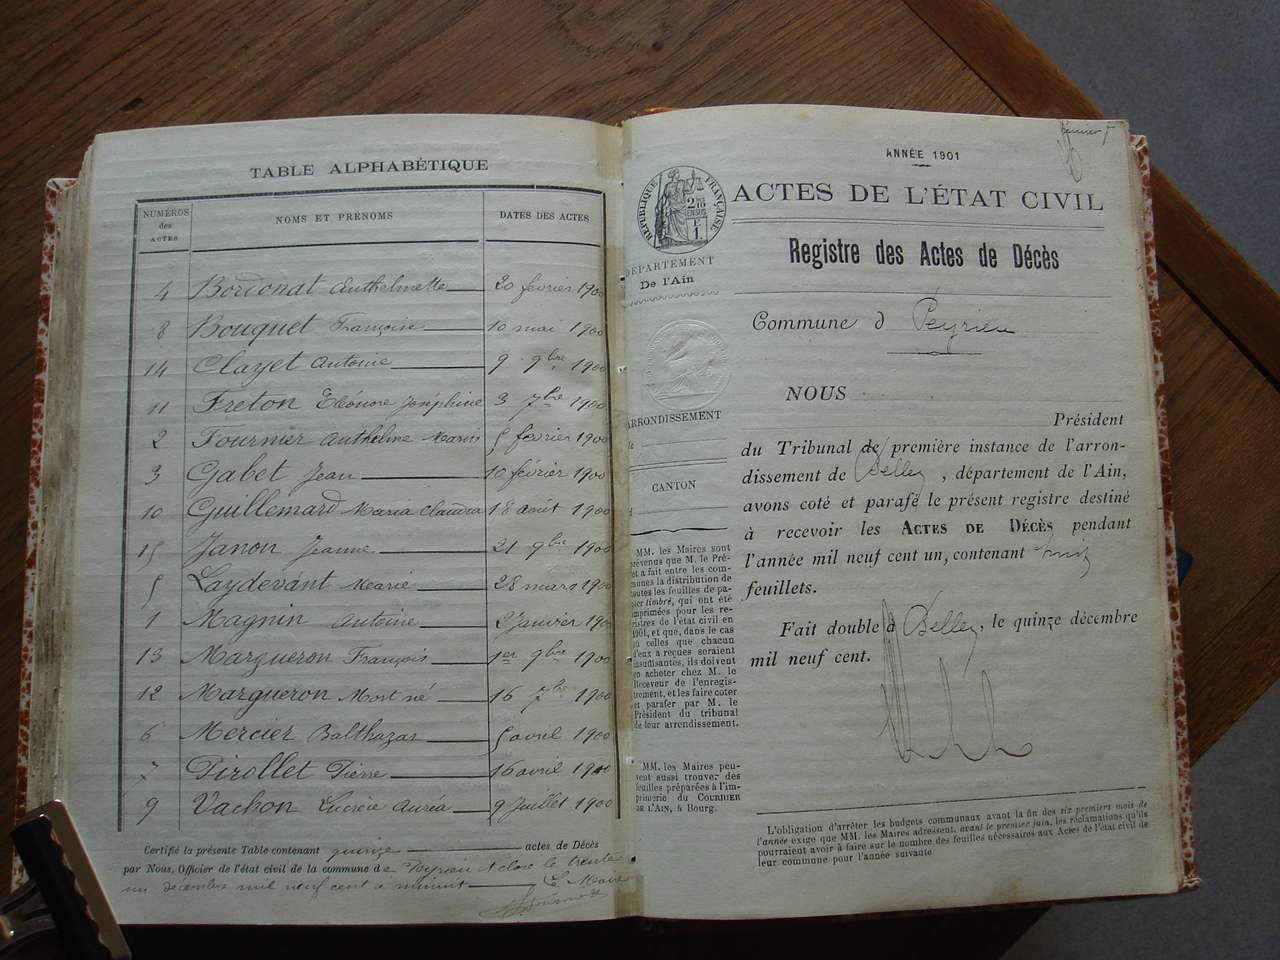 TABLE ALPHABÉTIQUE
NUMÉROS des ACTES NOMS ET PRÉNOMS DATES DES ACTES
4 Bordonat Anthelmette 20 février 1900
8 Bouquet Françoise 10 mai 1900
14 Clayet Antonie 9 9bre 1900
11 Freton Eléonore Joséphine 3 7bre 1900
2 Fournier Anthelme Marius 5 février 1900
3 Gabet Jean 10 février 1900
10 Guillemard Maria Claudia 18 août 1900
15 Janon Jeanne 21 9bre 1900
5 Laydevant Marie 28 mars 1900
1 Magnin Antoine 2 Janvier 1900
13 Margueron François 1er 9bre 1900
12 Margueron Mort né 16 7bre 1900
6 Mercier Balthazar 5 avril 1900
7 Pirollet Pierre 16 avril 1900
9 Vachon Lucrèce Auréa 9 Juillet 1900
Certifié la présente Table contenant quinze actes de Décès
par Nous, Officier de l'état civil de la commune de Peyrieu et close le trente
un décembre mil neuf cent à minuit Le Maire
ANNÉE 1901
ACTES DE L'ÉTAT CIVIL
RÉPUBLIQUE FRANÇAISE
2/10 EN SUS
Registre des Actes de Décès
DÉPARTEMENT
De l'Ain
Commune d Peyrieu
ARRONDISSEMENT
CANTON
NOUS
Président
du Tribunal de première instance de l'arron-
dissement de Belley, département de l'Ain,
avons coté et parafé le présent registre destiné
à recevoir les ACTES DE DÉCÈS pendant
l'année mil neuf cent un, contenant huit
feuillets.
Fait double à Belley, le quinze décembre
mil neuf cent.
MM. les Maires sont
prévenus que M. le Pré-
et a fait entre les com-
munes la distribution de
toutes les feuilles de pa-
pier timbré, qui ont été
imprimées pour les re-
gistres de l'état civil en
1901, et que, dans le cas
où celles que chacun
d'eux a reçues seraient
insuffisantes, ils doivent
en acheter chez M. le
Receveur de l'enregis-
trement, et les faire coter
et parafer par M. le
Président du tribunal
de leur arrondissement.
MM. les Maires peu-
vent aussi trouver des
feuilles préparées à l'im-
primerie du COURRIER
DE L'AIN, à Bourg.
L'obligation d'arrêter les budgets communaux avant la fin des six premiers mois de
l'année exige que MM. les Maires adressent, avant le premier juin, les réclamations qu'ils
pourraient avoir à faire sur le nombre des feuilles nécessaires aux Actes de l'état civil de
leur commune pour l'année suivante